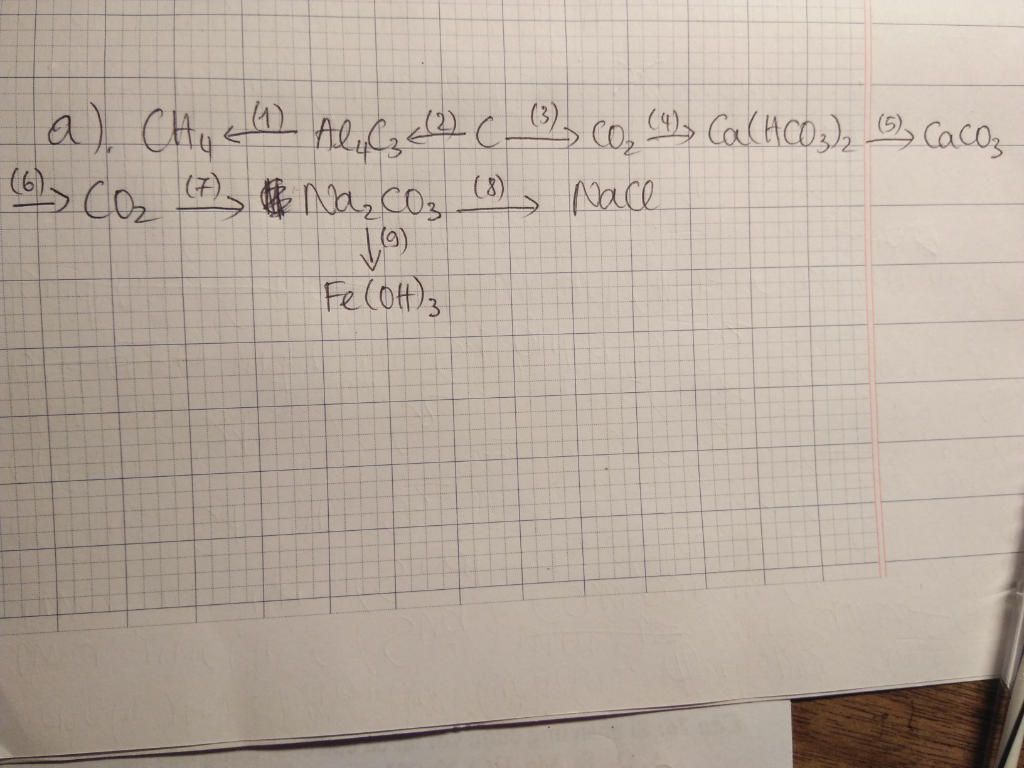 a). CH₄ ←(1) Al₄C₃ ←(2) C (3)→ CO₂ (4)→ Ca(HCO₃)₂ (5)→ CaCO₃
(6)→ CO₂ (7)→ Na₂CO₃ (8)→ NaCl
↓(9)
Fe(OH)₃